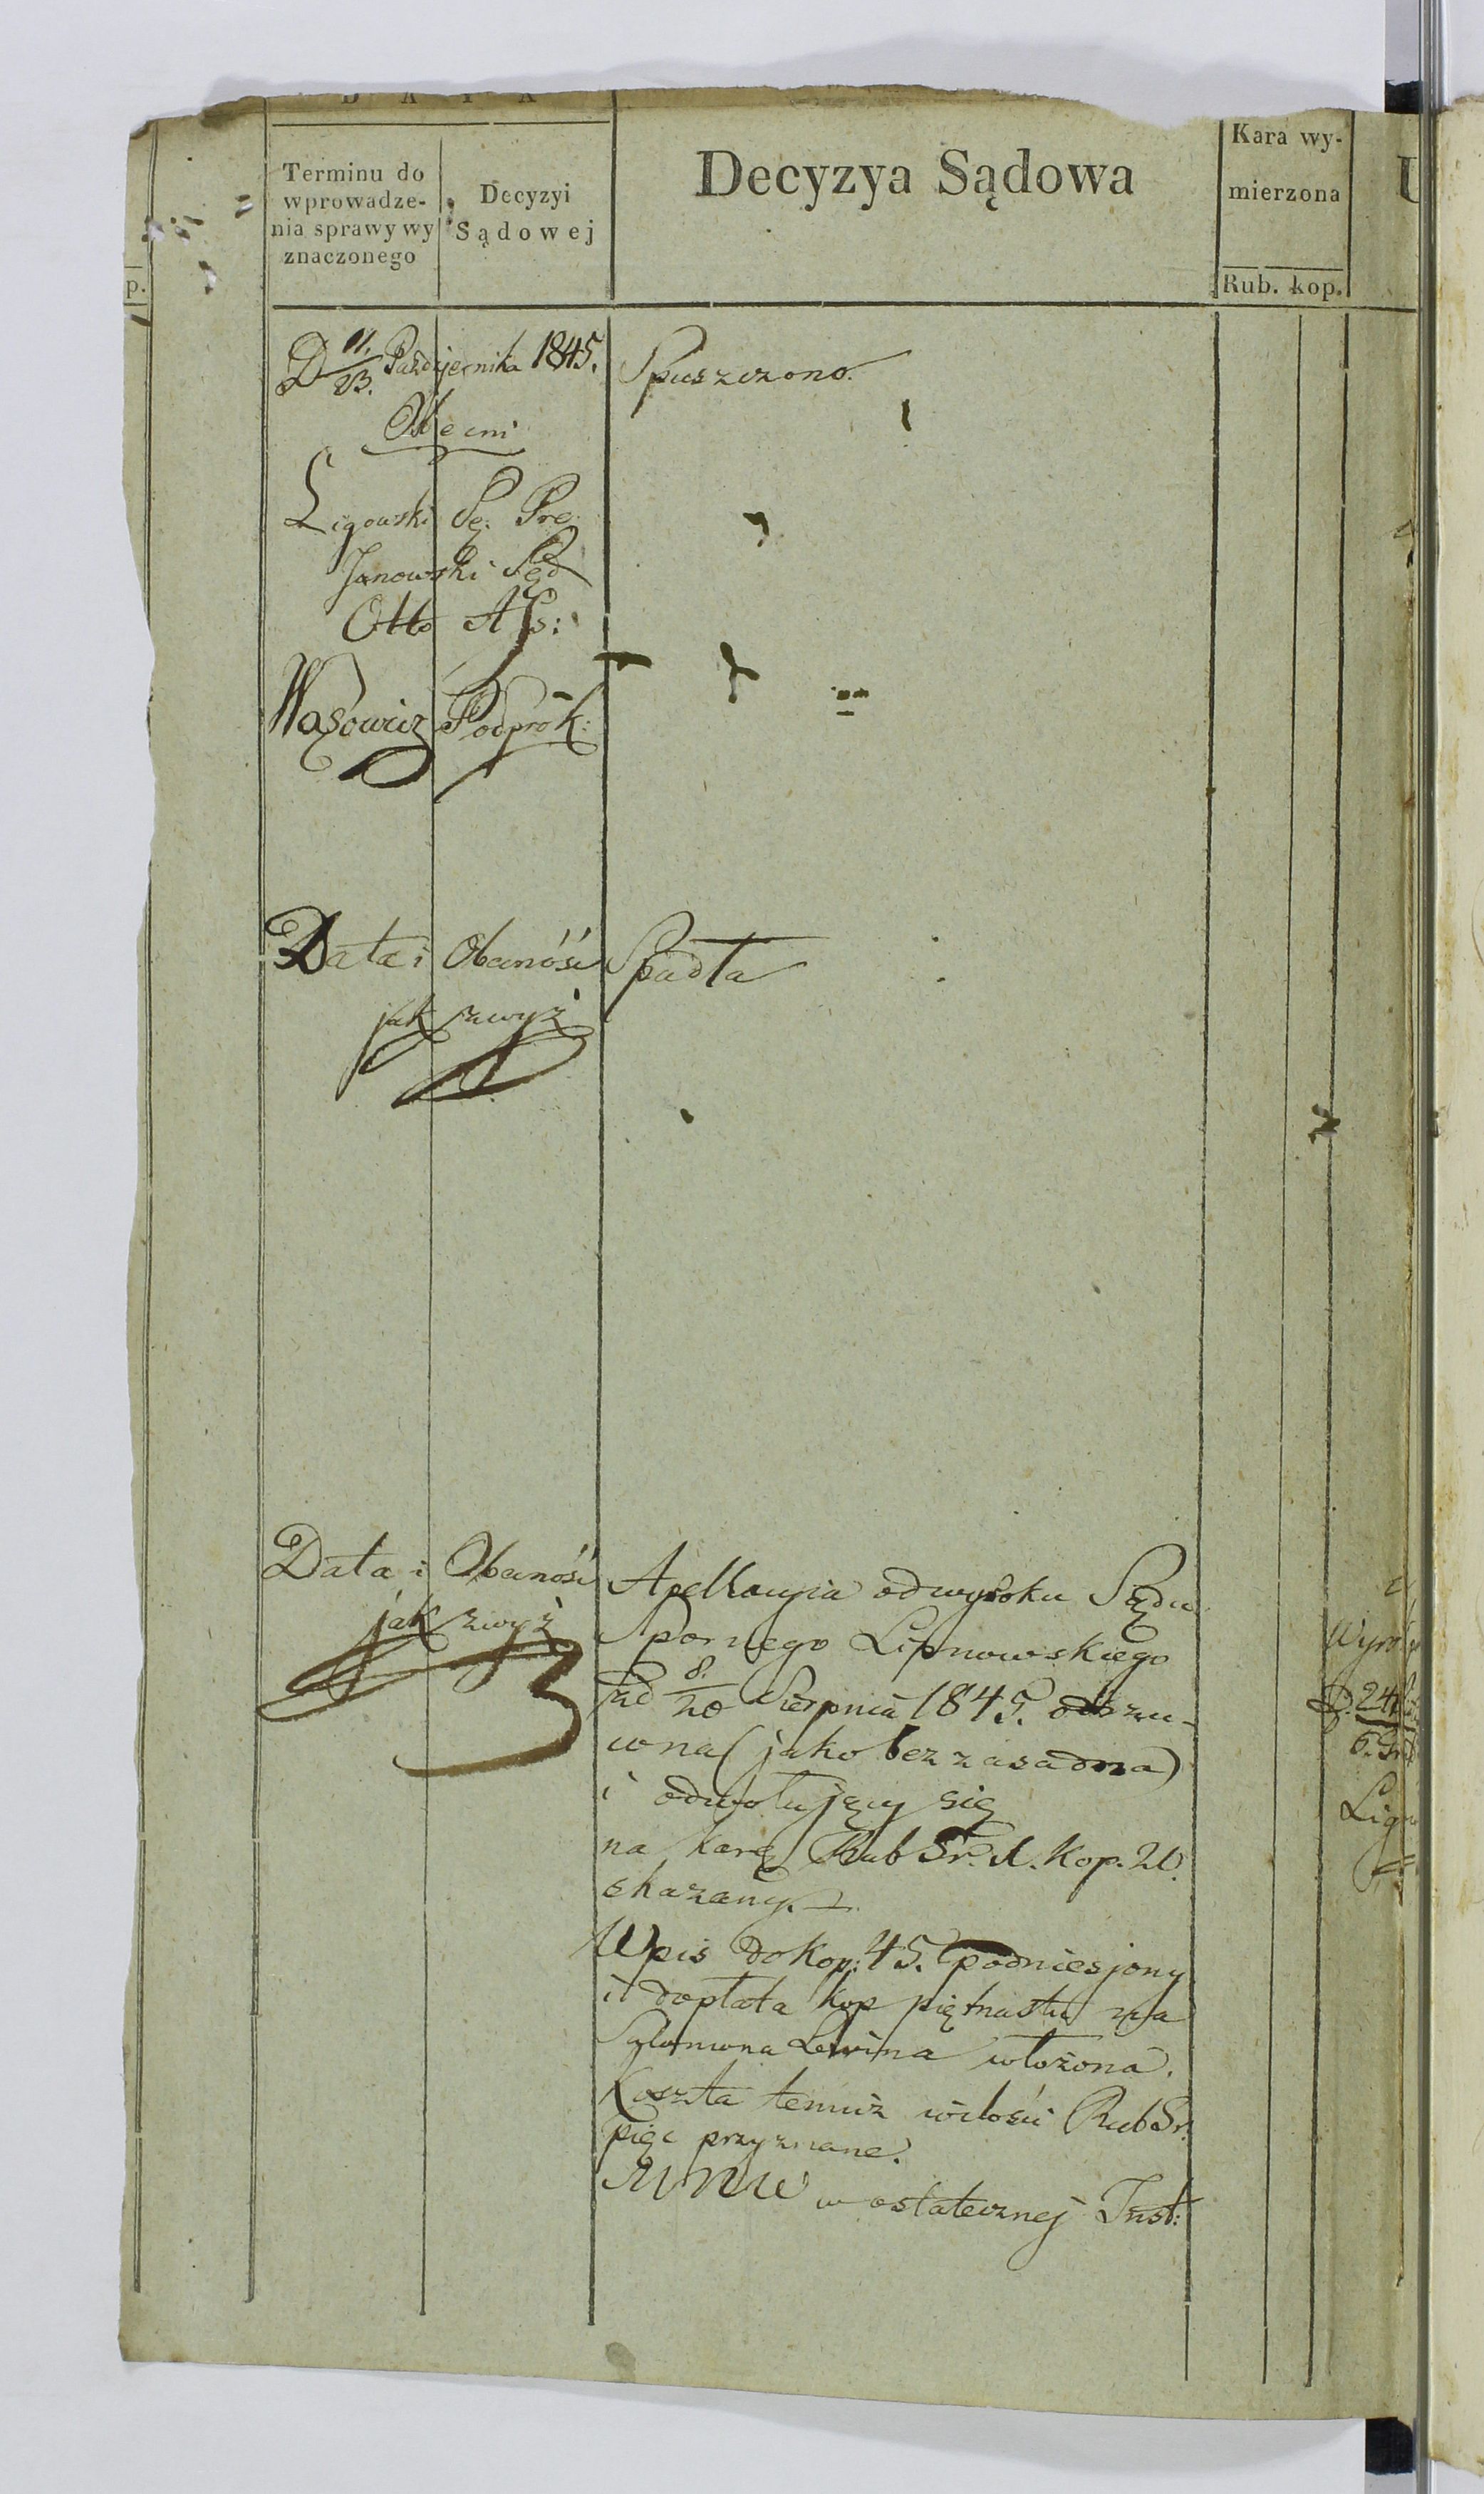 DATA
Terminu do
wprowadze-
nia sprawy wy
znaczonego
Decyzyi
Sądowej
Decyzya Sądowa
Kara wy-
mierzona
Rub. kop.
p.
D 11./23. Października 1845.
Obecni
Ligowski Sę. Pre.
Janowski Sęd
Otto Ass:
Wasowicz Podprok:
Spuszczono.
Data i Obecność
jak zwyż
Spadła
Data i Obecność
jak zwyż
Apellacyia od wyroku Sądu
Spornego Lipnowskiego
zd 8./20 Sierpnia 1845. odrzu-
cona (jako bezzasadna)
i odwołujący się
na karę Rub Sr. 1. Kop. 20.
skazany.
Wpis do Kop: 45. podniesjony
i dopłata kop piętnastu na
Lewina włożona.
Koszta temuż w ilości Rub Sr.
pięć przyznane.
w ostatecznej Inst:
Wyro
D. 24
6.
Ligo